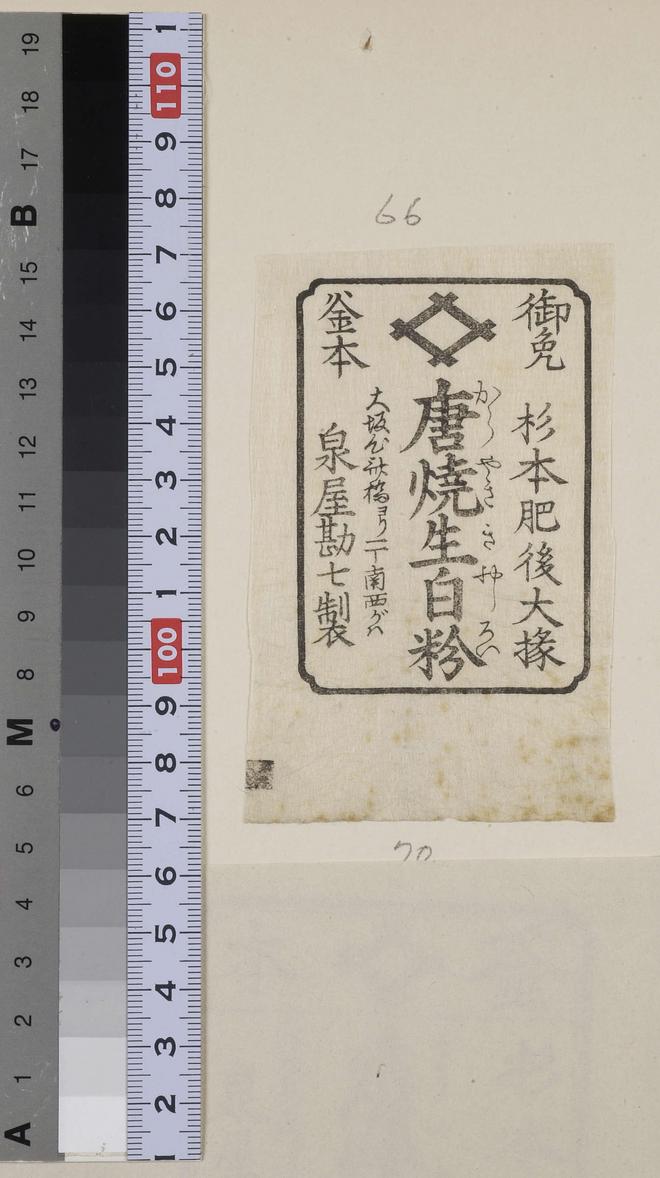 66
御免
杉本肥後大掾
からやききおしろい
唐燒生白粉
大坂心斎橋ヨリ一丁南西がハ
釜本
泉屋勘七製
70
19
18
17
B
15
14
13
12
11
10
9
8
M
6
5
4
3
2
1
A
1
110
9
8
7
6
5
4
3
2
1
100
9
8
7
6
5
4
3
2